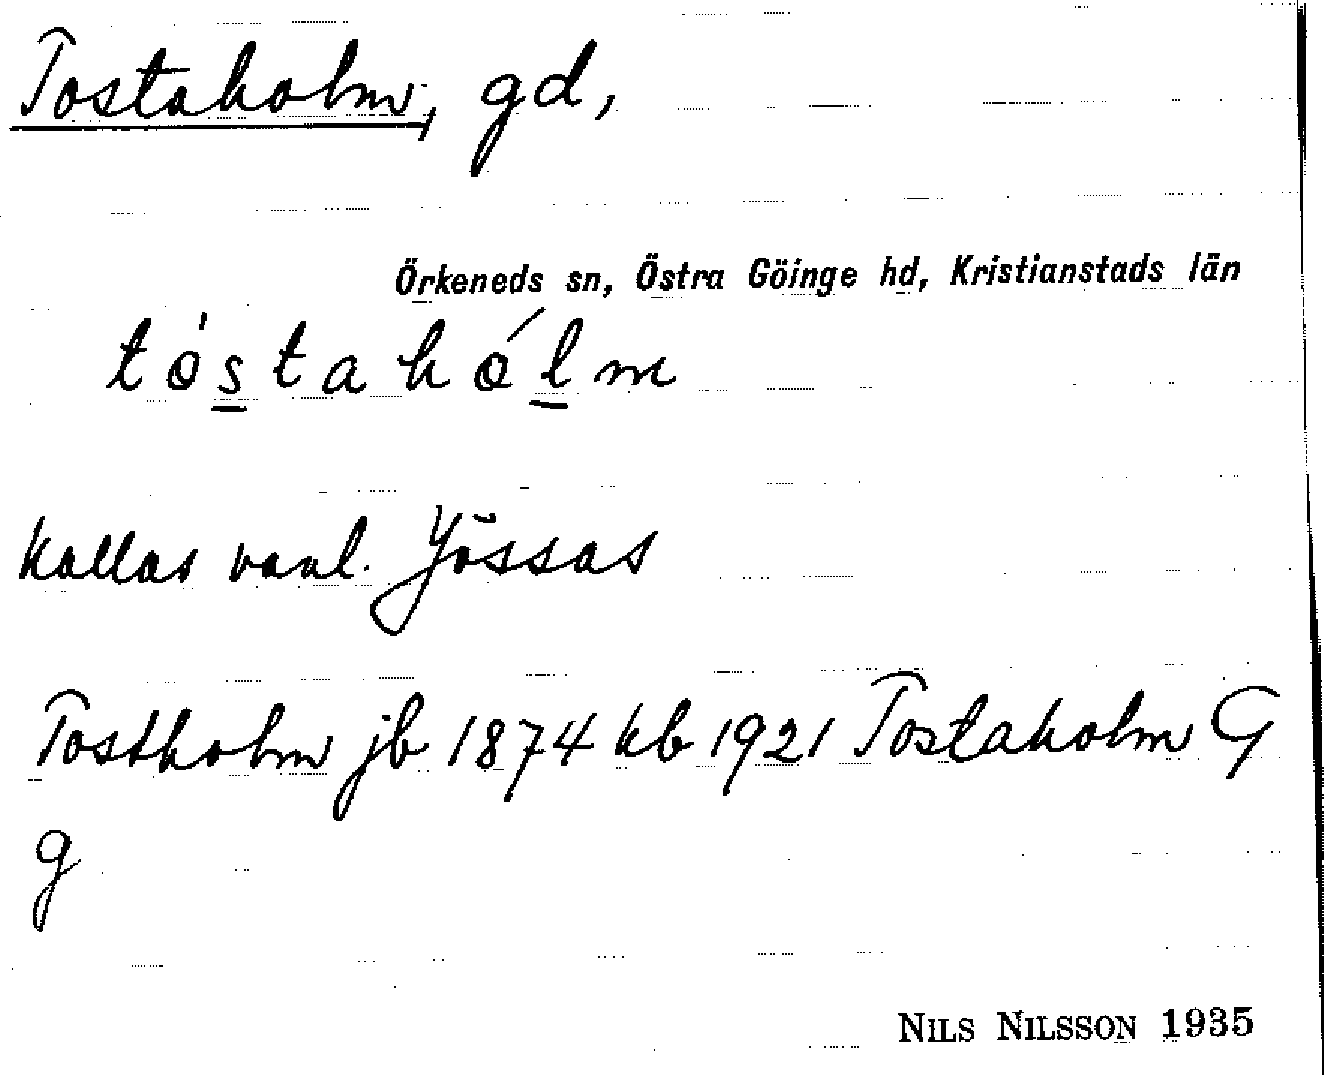 Tostaholm, gd,
Örkeneds sn, Östra Göinge hd, Kristianstads län
tòstahólm
kallas vanl. Jössas
Tostholm jb 1874 kb 1921 Tostaholm G
g
NILS NILSSON 1935